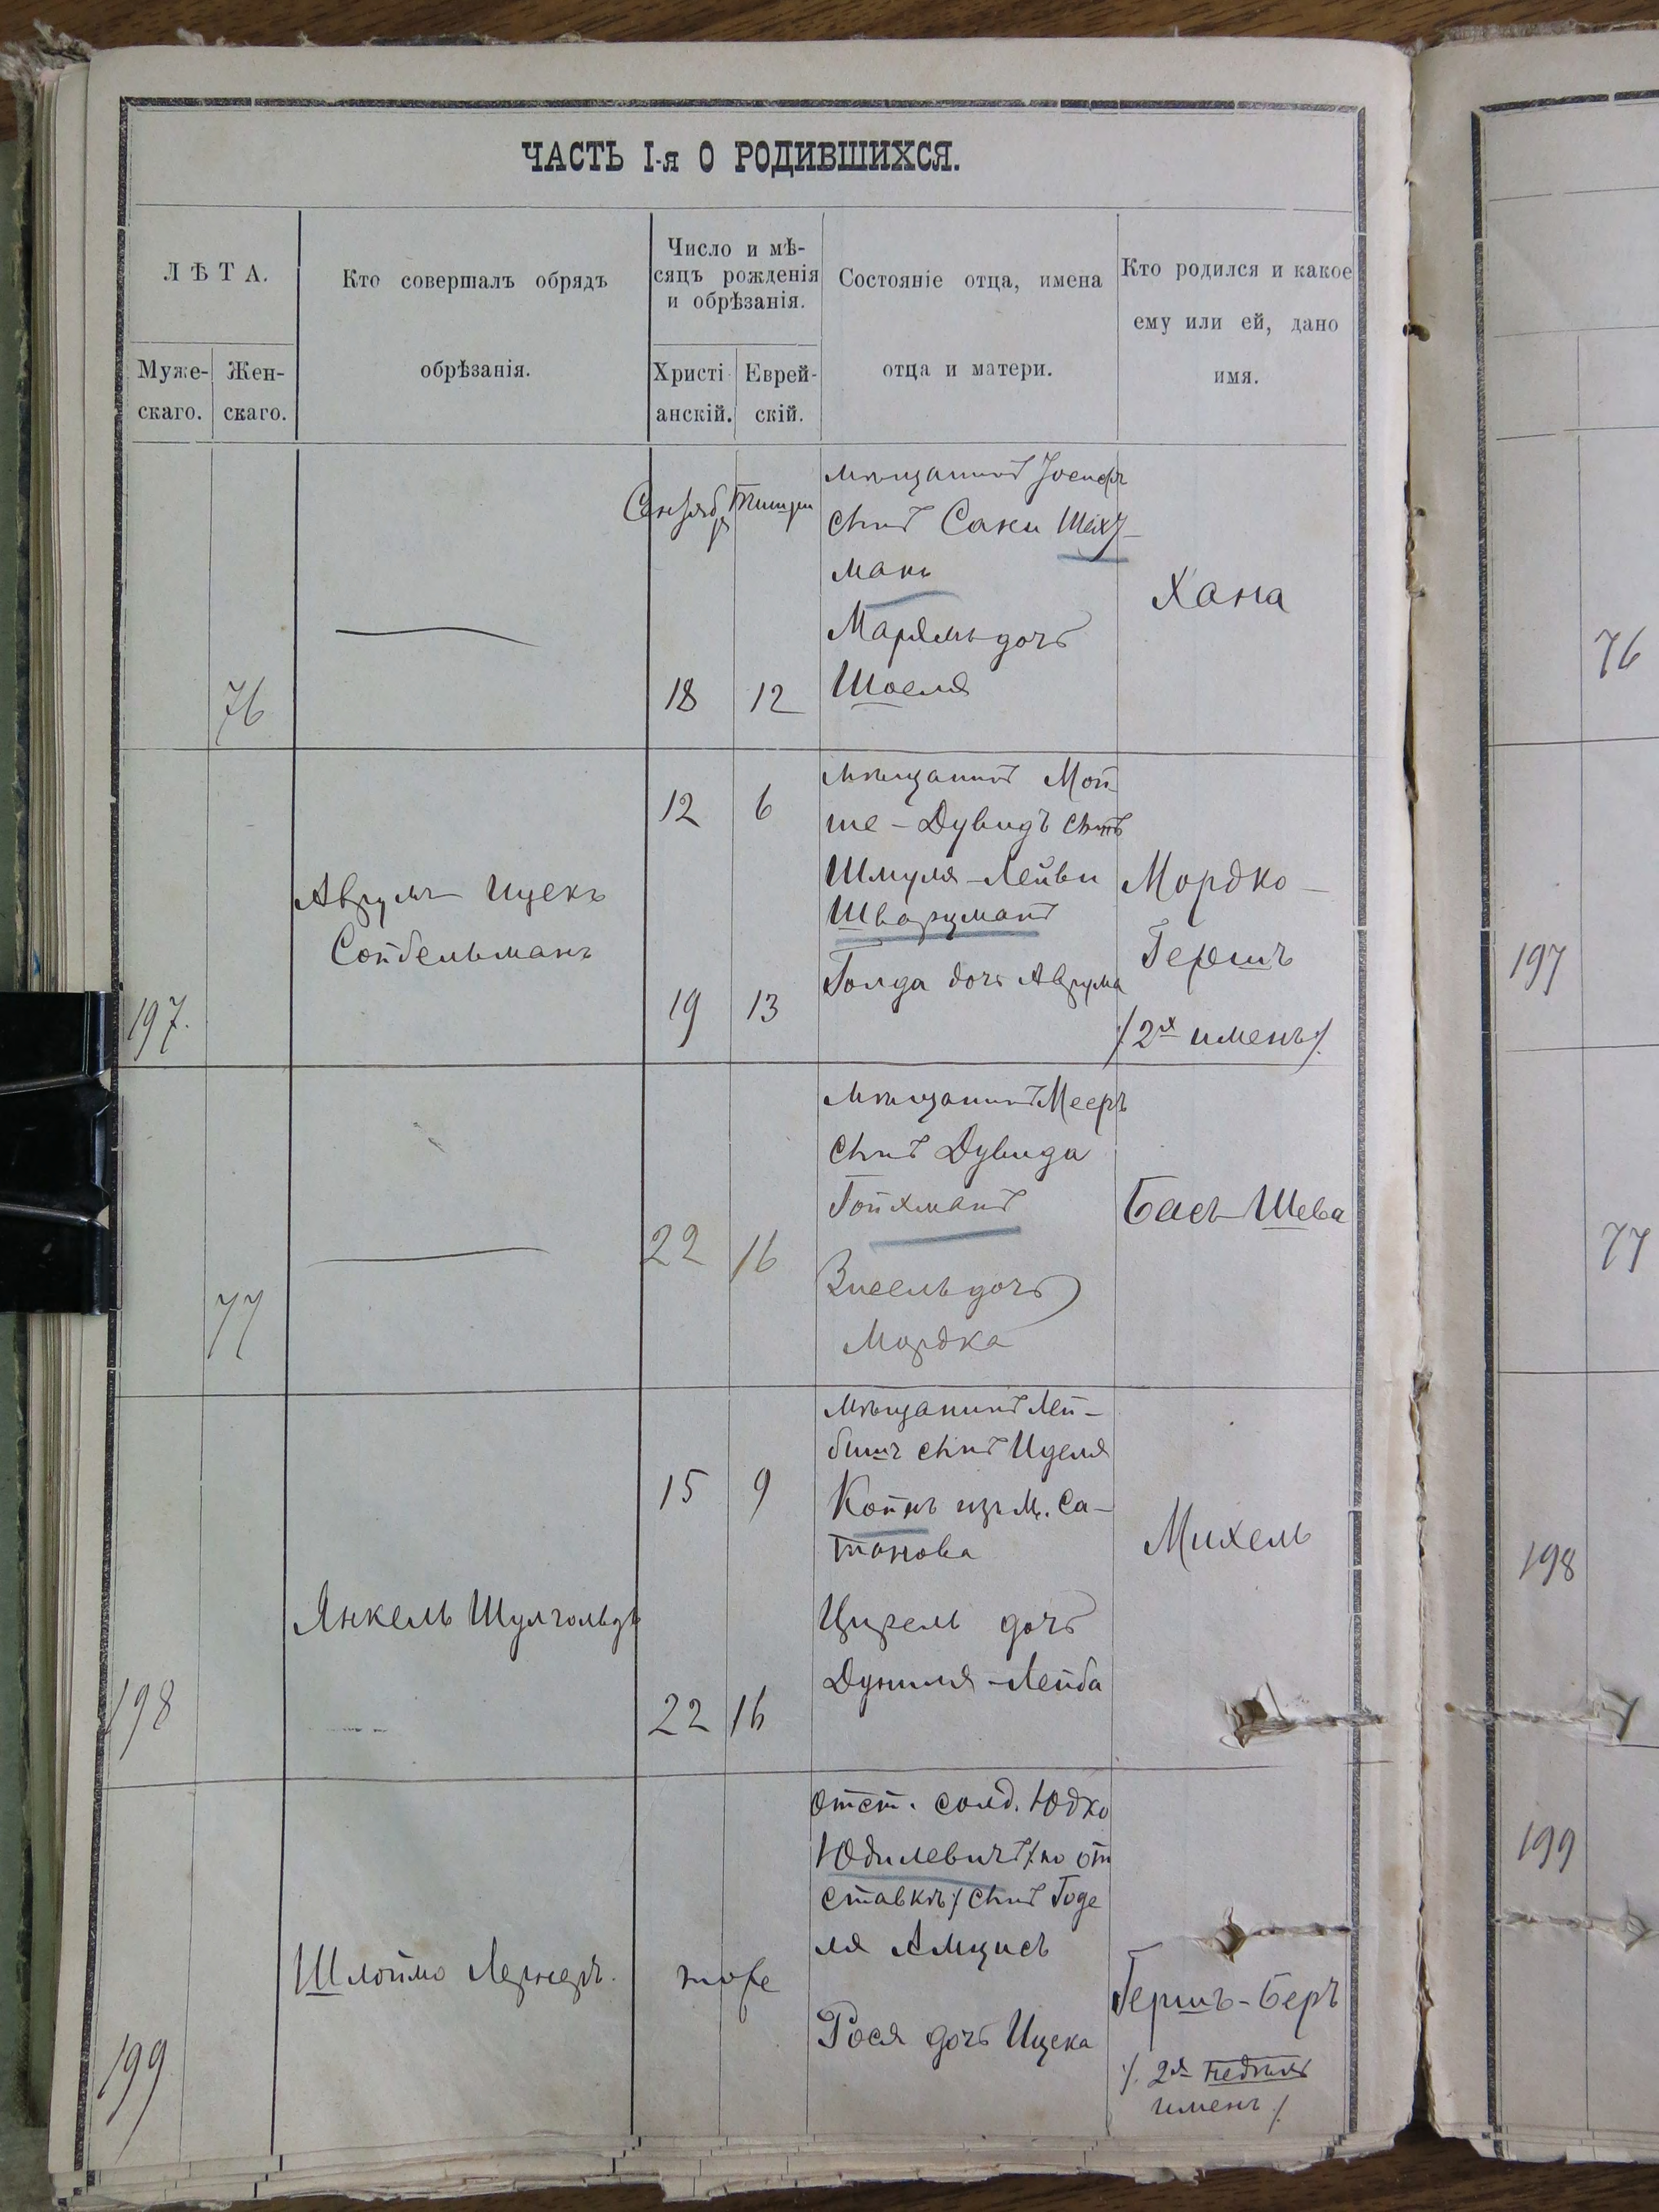 ЧАСТЬ I-я О РОДИВШИХСЯ.
ЛѢТА.
Муже-
скаго.
Жен-
скаго.
Кто совершалъ обрядъ
обрѣзанія.
Число и мѣ-
сяцъ рожденія
и обрѣзанія.
Христі
анскій.
Еврей-
скій.
Состояніе отца, имена
отца и матери.
Кто родился и какое
ему или ей, дано
имя.
76
Сентяб
ря
Тишри
18
12
мѣщанинъ Іосифъ
сынъ Саки Шейх
манъ
Марьямъ дочь
Шоеля
Хана
76
197.
Аврумъ Ицекъ
Сойбельманъ
12
6
19
13
мѣщанинъ Мой
ше-Дувидъ сынъ
Шмуля-Лейви
Шварцманъ
Голда дочь Аврума
Мордко-
Гершъ
/2хъ именъ/.
197
77
22
16
мѣщанинъ Мееръ
сынъ Дувида
Гойхманъ
Зисель дочь
Мордка
Бась Шева
77
198
Янкель Шулгольдъ
15
9
22
16
мѣщанинъ Лей-
бишъ сынъ Иделя
Койнъ изъ м. Са-
танова
Цирель дочь
Дуниля-Лейба
Михель
198
199
Шлоймо Лернеръ.
тоже
отст. солд. Юдко
Юдилевичъ /по от
ставкѣ/ сынъ Годе
ля Амцисъ
Рося дочь Ицека
Гершъ-Беръ
/. 2хъ
именъ /
199